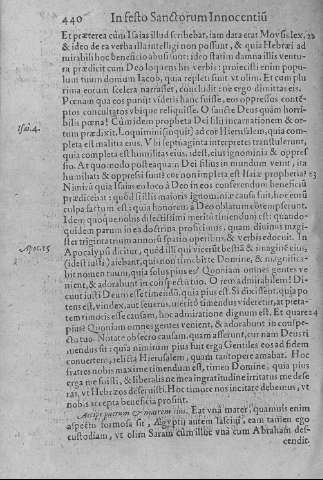 440 In festo Sanctorum Innocentiũ
Et præterea cùm Isaias illud scribebat, iam data erat Moysis lex, 22
& ideo de ea verba illa intelligi non possunt, & quia Hebræi ad
mirabili hoc beneficio abusi sunt: ideo statim damna illis ventu
ra prædicit cum Deo loquens his verbis: proiecisti enim popu-
lum tuum domum Iacob, quia repleti sunt vt olim. Et cum plu
rima eorum scelera narrasset, concludit: ne ergo dimittas eis.
Pœnam qua eos punijt videris hanc fuisse, eos oppressos contẽ-
ptos conculcatos vbique reliquisse. O sancte Deus quàm horri-
bilis pœna! Cùm idem propheta Dei filij incarnationem & or-
tum prædixit, Loquimini (inquit) ad cor Hierusalem, quia com-
Isai. 4. pleta est malitia eius. Vbi septuaginta interpretes transtulerunt,
quia completa est humilitas eius, idest, eius ignominia & oppres
sio. At quomodo posteaquàm Dei filius in mundum venit, ita
humiliati & oppressi sunt? eos non impleta est Isaiæ prophetia? 23
Nimirũ quia Isaias eo loco à Deo in eos conferendum beneficiũ
prædicebat: quod si illis maioris ignominiæ causa fuit, hoc eorũ
culpa factum est: quia honorem à Deo oblatum contempserunt.
Idem quoque nobis dilectissimi meritò timendum est: quando-
quidem parum in ea doctrina proficimus, quam diuinus magi-
ster triginta trium annorũ spatio operibus & verbis edocuit. In
Apoc. 15 Apocalypsi dicitur, quòd illi qui vicerũt bestiã & imaginẽ eius
(idest Iustis) aiebant, quis non timebit te Domine, & magnifica-
bit nomen tuum, quia solus pius es? Quoniam omnes gentes ve
nient, & adorabunt in conspectu tuo. O rem admirabilem! Di-
cunt iusti Deum esse timendũ, quia pius est. Si dixissent, quia po-
tens est, vindex, aut seuerus, meritò timendus videretur, at pieta-
tem timoris esse causam, hoc admiratione dignum est. Et quare 24
pius? Quoniam omnes gentes venient, & adorabunt in conspe-
ctu tuo. Notate obsecro causam, quam asserunt, cur nam Deus ti
mendus sit: quia nimirum pius fuit erga Gentiles eos ad fidem
conuertere, relicta Hierusalem, quam tantopere amabat. Hoc
fratres nobis maximè timendum est, timeo Domine, quia pius
erga me fuisti, & liberalis ne mea ingratitudine irritatus me dese
ras, vt Hebræos deseruisti. Hoc timore nos incitate debemus, vt
nobis accepta beneficia prosint.
Accipe puerum & matrem eius. Eat vnà mater, quamuis enim
aspectu formosa sit, Ægyptij autem lasciui, eam tamen ego
custodiam, vt olim Saram cùm illuc vnà cum Abraham des-
cendit.